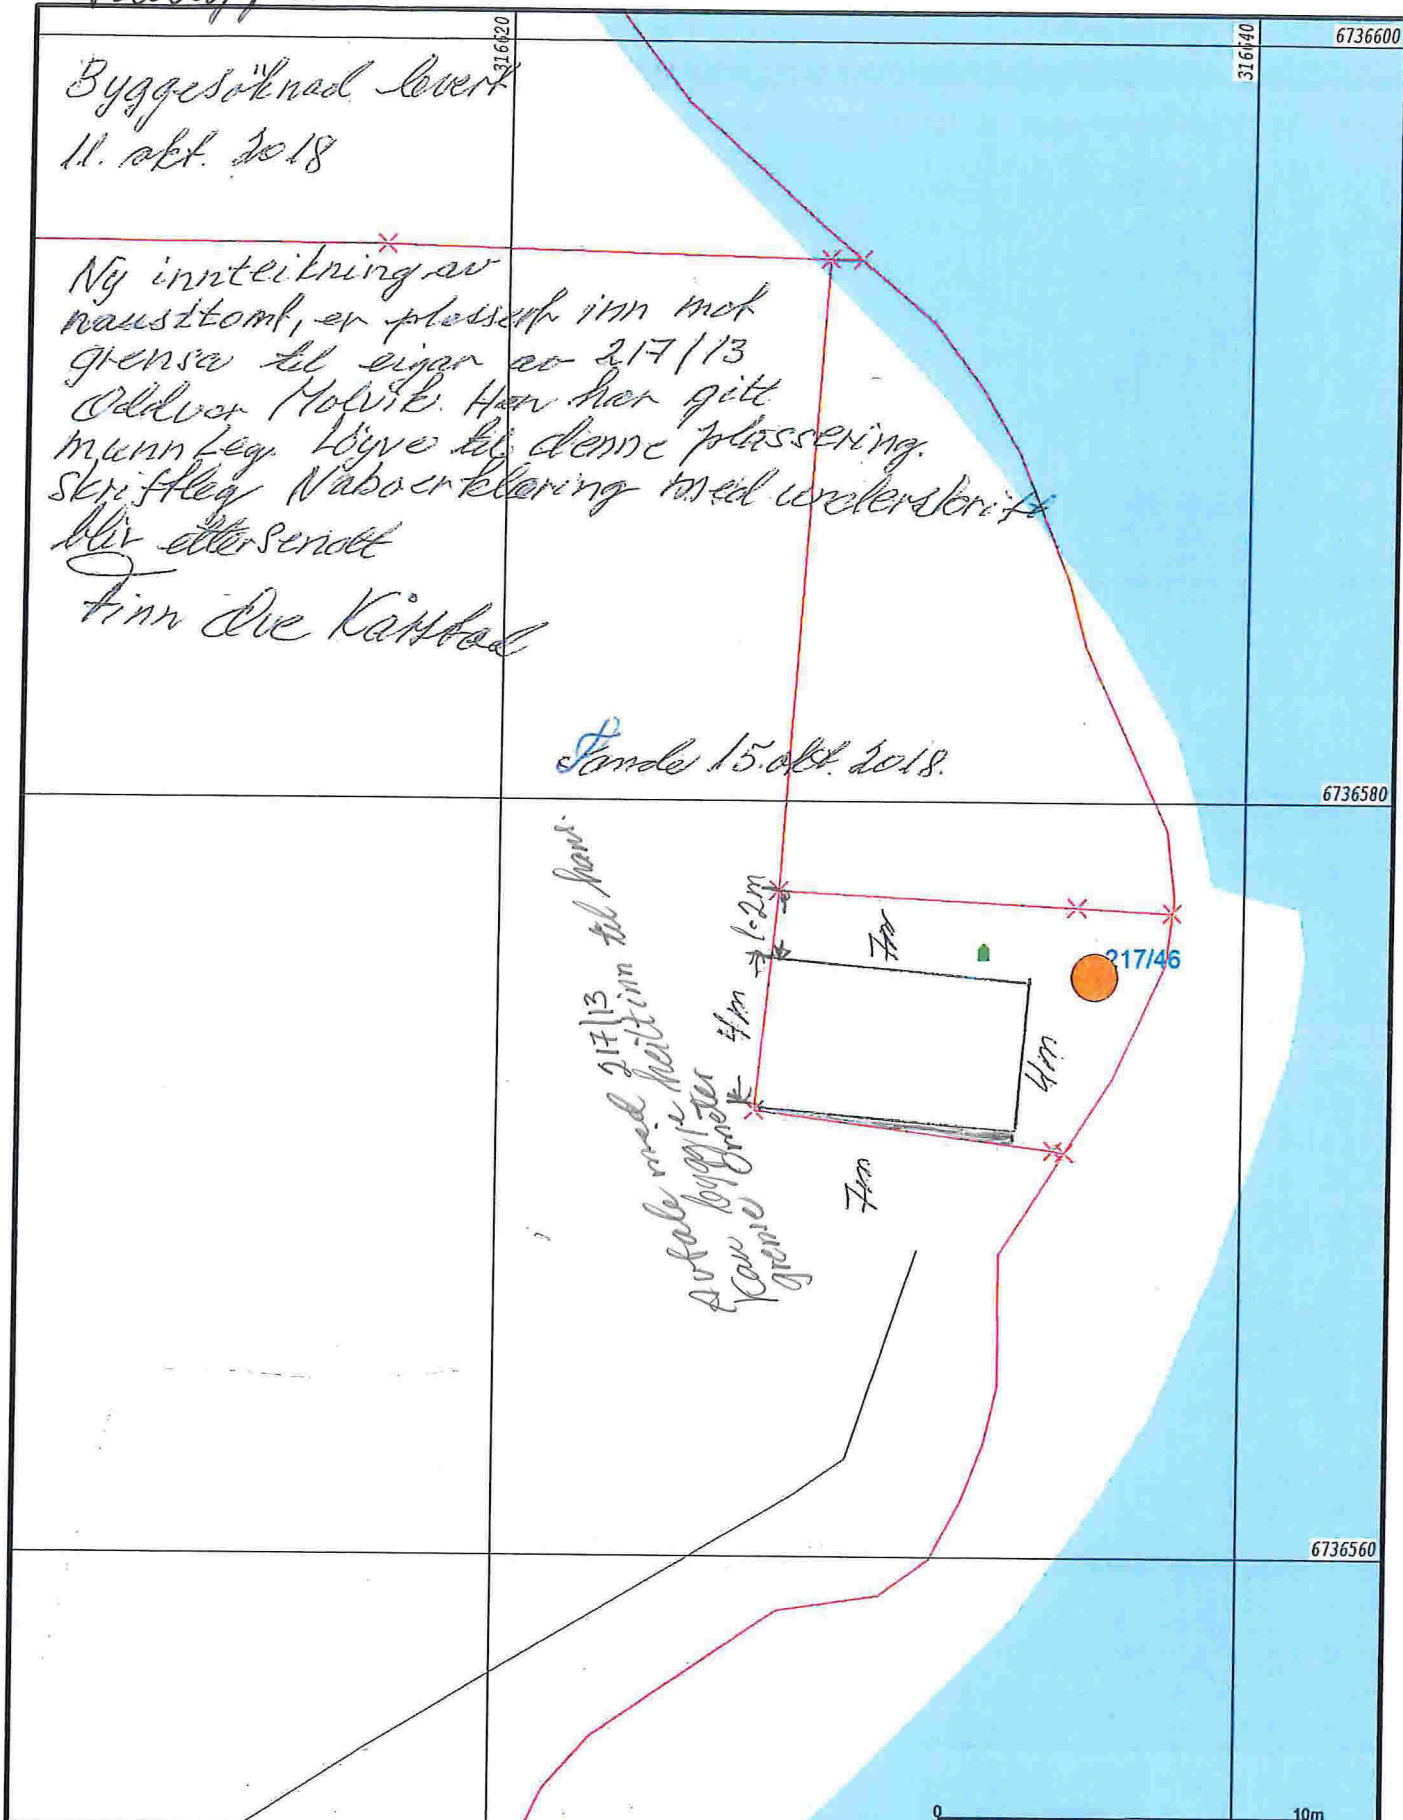 316620
316640
6736600
Byggesöknad levert
11. okt. 2018
Ny innteikning av
nausttomt, er plassert inn mot
grensa til eigar av 217/13
Oddvar Molvik. Han har gitt
munnleg. Löyve til denne plassering.
Skriftleg Naboerklæring med underskrift
blir ettersendt
Finn Ove Kårstad
15. okt. 2018.
6736580
1.2m
7m
217/46
4m
4m
7m
Avtale med 217/13
Kan bygge heilt inn til hans
grense 0 meter
6736560
0
10m